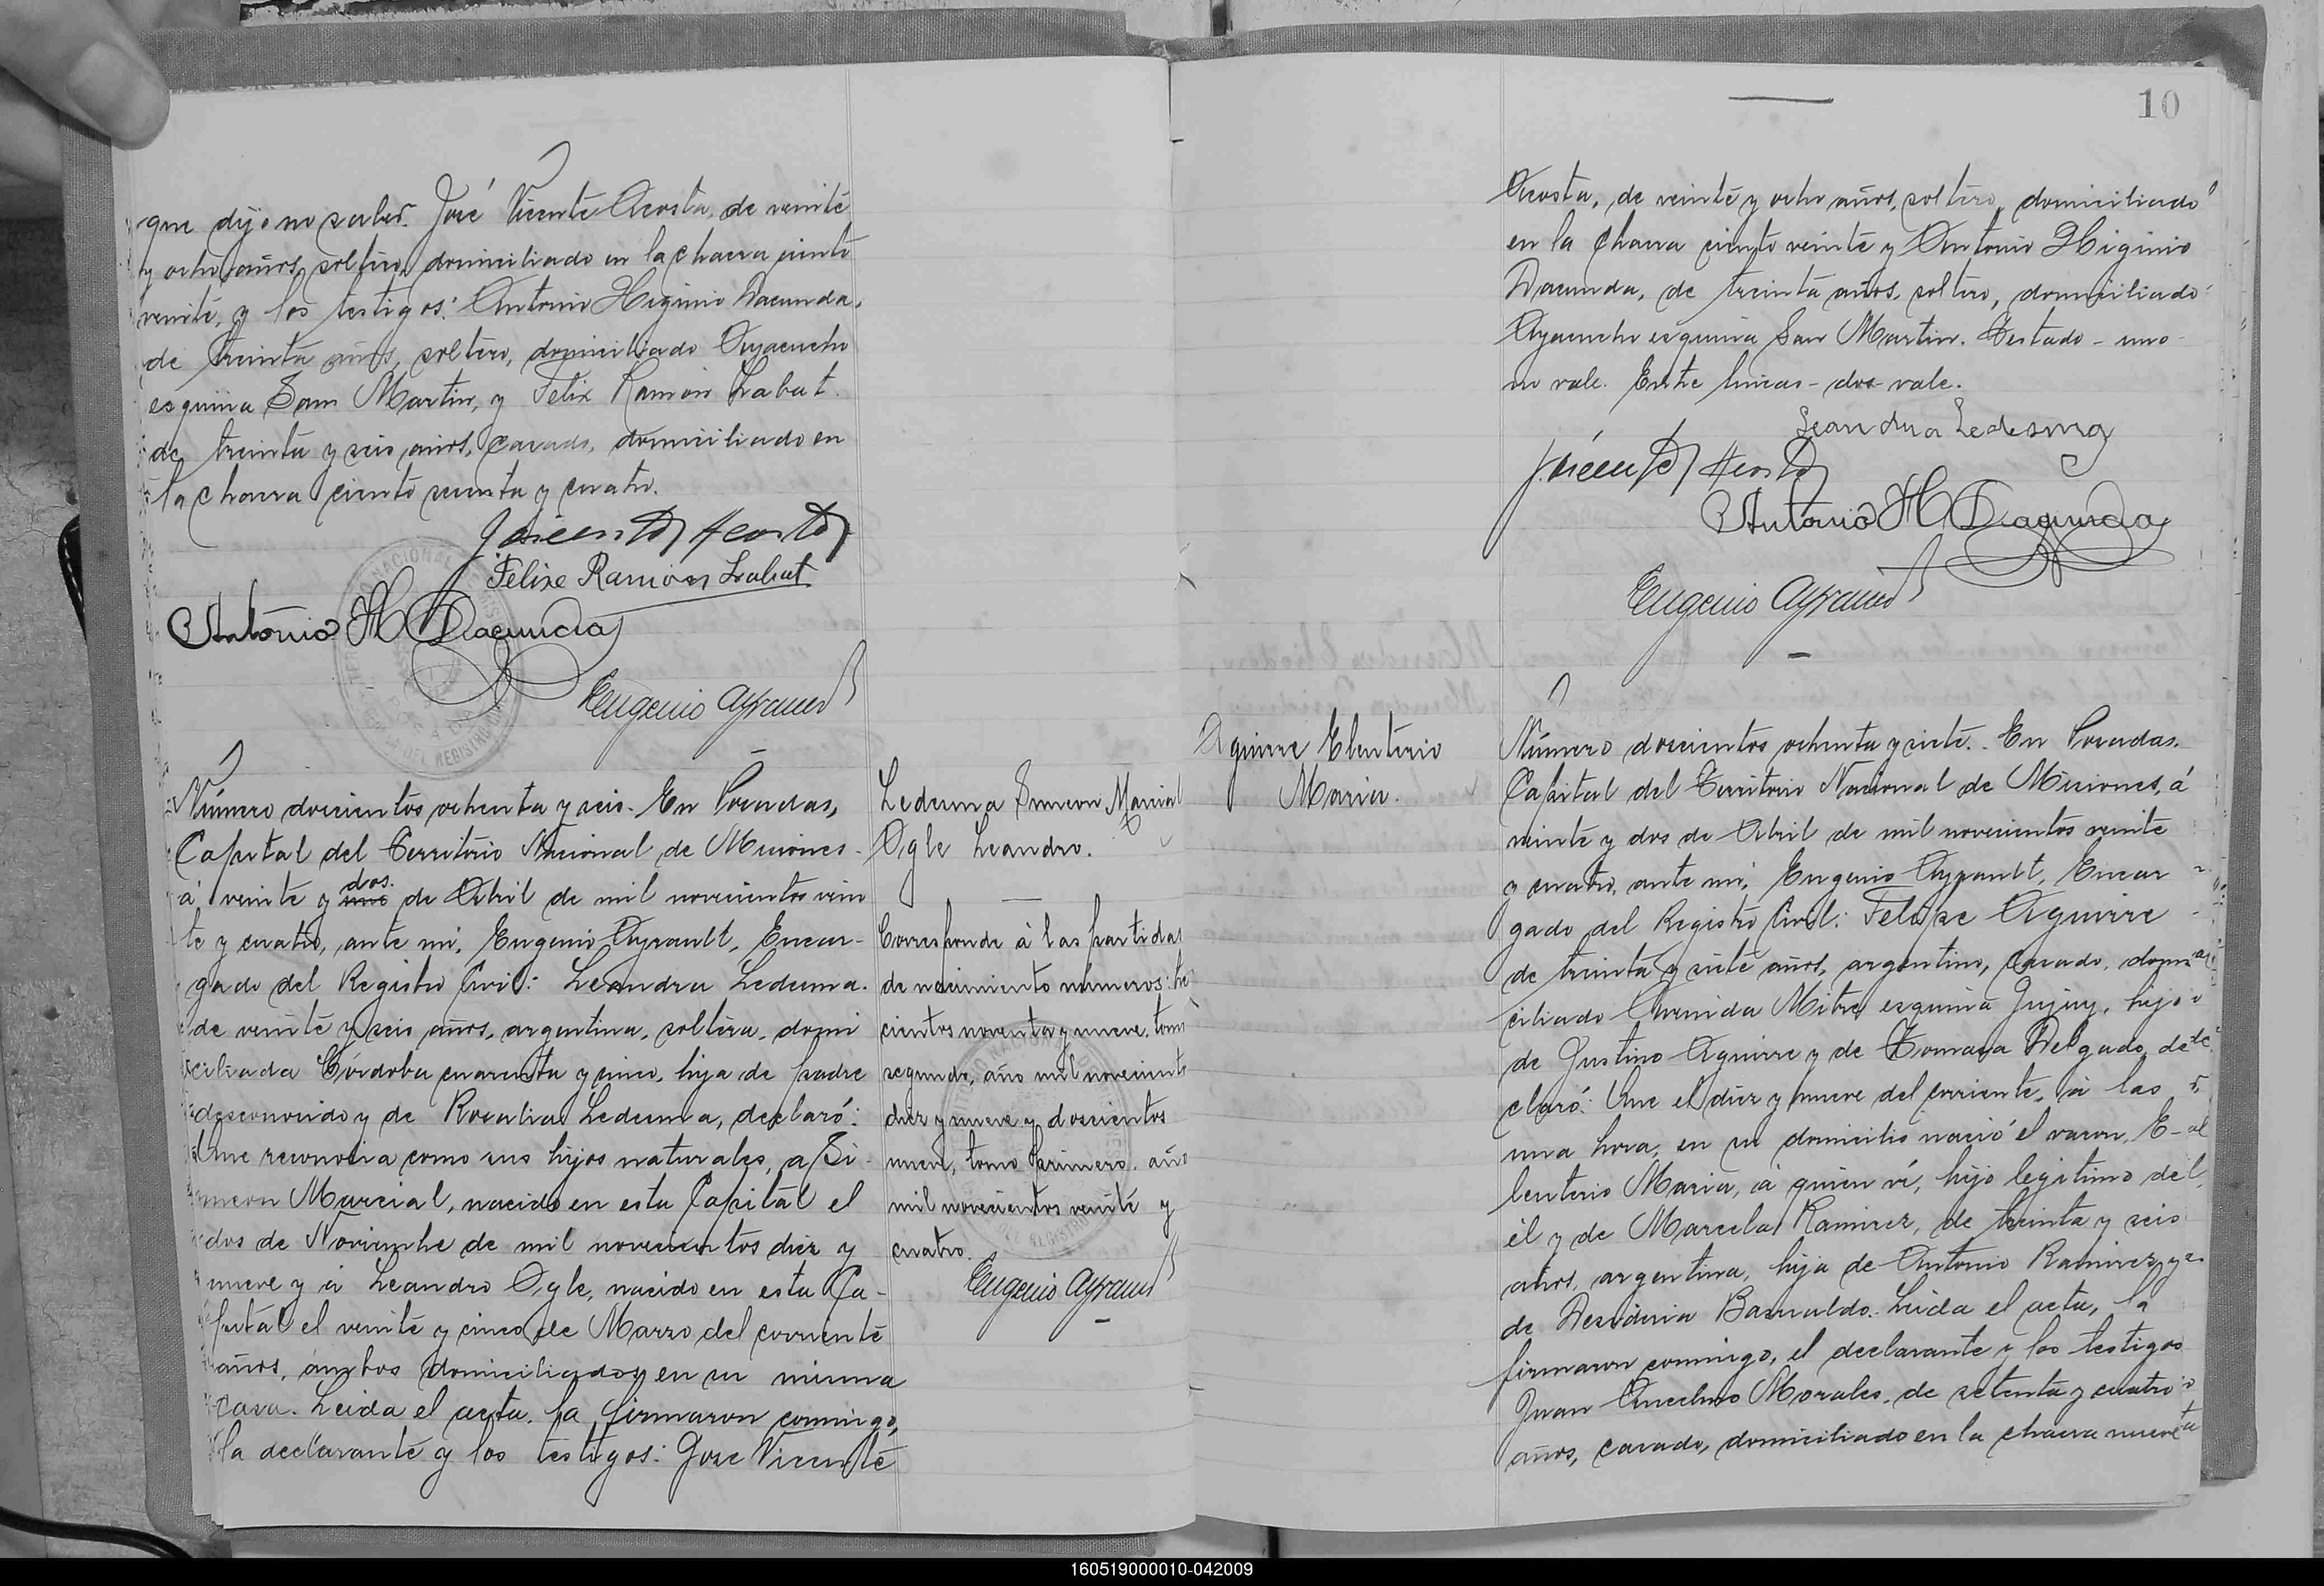 que dijo no saber. José Vicente Acosta, de veinte
y ocho años, soltero, domiciliado en la chacra ciento
veinte, y los testigos: Antonio Higinio Dacunda,
de treinta años, soltero, domiciliado Ayacucho
esquina San Martin, y Felix Ramón Labat.
de treinta y seis años, casado, domiciliado en
la chacra ciento sesenta y cuatro.
J. Vicente Acosta
Felix Ramón Labat
Antonio H Dacunda
Eugenio Ayrault
Número doscientos ochenta y seis. En Posadas,
Capital del Territorio Nacional de Misiones
dos.
á veinte y uno de Abril de mil novecientos vein
te y cuatro, ante mi, Eugenio Ayrault, Encar-
gado del Registro Civil: Leandra Ledesma.
de veinte y seis años, argentina, soltera, domi
ciliada Córdoba cuarenta y cinco, hija de padre
desconocido y de Rosalia Ledesma, declaró:
Que reconocia como sus hijos naturales, a Si-
meon Marcial, nacido en esta Capital el
dos de Noviembre de mil novecientos diez y
nueve y á Leandro Ogle, nacido en esta Ca-
pital el veinte y cinco de Marzo del corriente
años, ámbos domiciliados en su misma
casa. Leida el acta, la firmaron conmigo,
la declarante y los testigos: Jose Vicente
Ledesma Simeon Marcial
Ogle Leandro.
Corresponde á las partidas
de nacimiento números:
cientos noventa y nueve, tomo
segundo, año mil novecientos
diez y nueve y doscientos
nueve, tomo primero, año
mil novecientos veinte y
cuatro.
Eugenio Ayrault
10
Acosta, de veinte y ocho años, soltero, domiciliado
en la chacra ciento veinte y Antonio Higinio
Dacunda, de treinta años, soltero, domiciliado
Ayacucho esquina San Martin. Testado - uno -
no vale. Entre lineas - dos - vale.
Leandra Ledesma
J. Vicente Acosta
Antonio H Dacunda
Eugenio Ayrault
Aguirre Eleuterio
Maria.
Número doscientos ochenta y siete. En Posadas.
Capital del Territorio Nacional de Misiones, á
veinte y dos de Abril de mil novecientos veinte
y cuatro, ante mi, Eugenio Ayrault, Encar
gado del Registro Civil: Felipe Aguirre
de treinta y siete años, argentino, casado, domi
ciliado Avenida Mitre esquina Jujuy, hijo
de Justino Aguirre y de Tomasa Delgado, de
claró: Que el diez y nueve del corriente, á las
una hora, en su domicilio nació el varon, E-
leuterio Maria, á quien ví, hijo legitimo del
él y de Marcela Ramirez, de treinta y seis
años, argentina, hija de Antonio Ramirez y
de Desideria Basualdo. Leida el acta, la
firmaron conmigo, el declarante y los testigos
Juan Anselmo Morales, de setenta y cuatro
años, casado, domiciliado en la chacra nueve
160519000010-042009